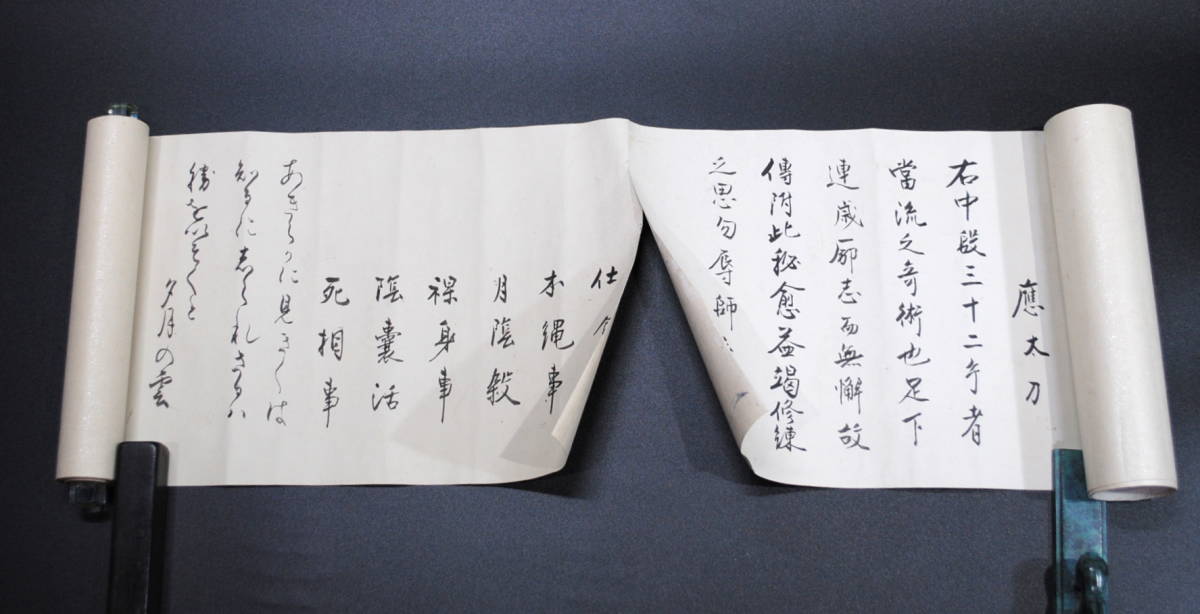 應太刀
右中段三十二手者
當流之奇術也足下
連歳厲志而無懈故
傳附此秘愈益竭修練
之思勿辱師
仕
本縄事
月陰殺
裸身事
陰嚢活
死相事
あきらかに見きくは
知るにしられさるハ
勝を
夕月の雲